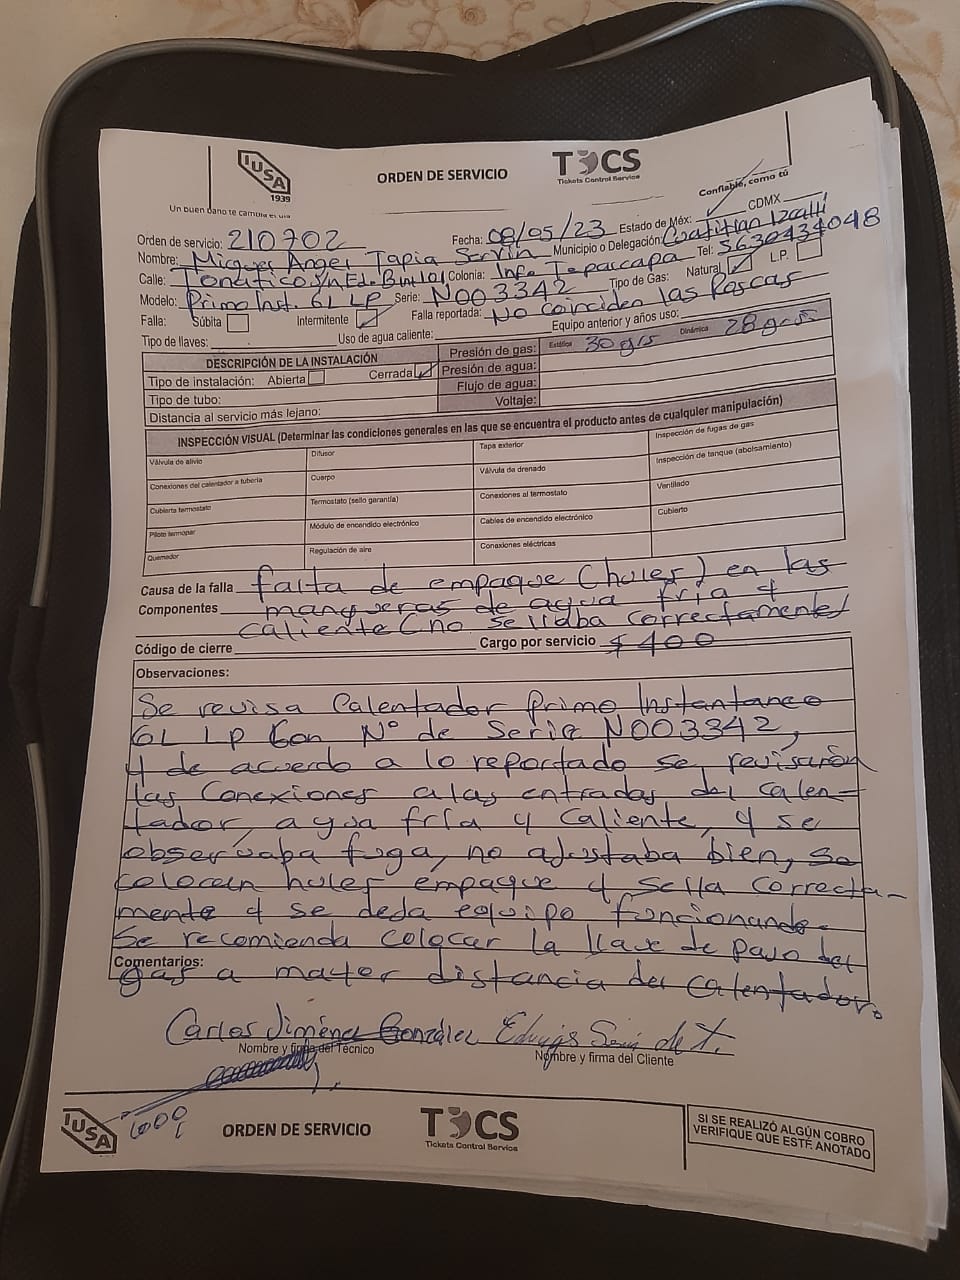 IUSA
1939
Un buen baño te cambia el día
ORDEN DE SERVICIO
TCS
Tickets Control Service
Confiable, como tú
Orden de servicio: 210702
Fecha: 08/05/23
Estado de Méx:
CDMX
Nombre: Miguel Angel Tapia Servín
Municipio o Delegación: Izcalli
Calle: Tonatico S/n Ed. B int 101 Colonia: Info. Tepalcapa Tel: 5630434048
Modelo: Primo Inst. 6L LP Serie: N003342 Tipo de Gas: Natural L.P.
Falla: Súbita Intermitente Falla reportada: No coinciden las Roscas
Tipo de llaves: Uso de agua caliente: Equipo anterior y años uso:
DESCRIPCIÓN DE LA INSTALACIÓN Presión de gas: Estática 30 grs Dinámica 28 grs
Tipo de instalación: Abierta Cerrada Presión de agua:
Tipo de tubo: Flujo de agua:
Distancia al servicio más lejano: Voltaje:
INSPECCIÓN VISUAL (Determinar las condiciones generales en las que se encuentra el producto antes de cualquier manipulación)
Válvula de alivio Difusor Tapa exterior Inspección de fugas de gas
Conexiones del calentador a tubería Cuerpo Válvula de drenado Inspección de tanque (abolsamiento)
Cubierta termostato Termostato (sello garantía) Conexiones al termostato Ventilado
Piloto termopar Módulo de encendido electrónico Cables de encendido electrónico Cubierto
Quemador Regulación de aire Conexiones eléctricas
Causa de la falla falta de empaque (hules) en las
Componentes mangueras de agua fría y
caliente (no sellaba correctamente)
Código de cierre Cargo por servicio $ 400
Observaciones:
Se revisa Calentador Primo Instantaneo
6L LP Con N° de Serie N003342,
y de acuerdo a lo reportado se revisarón
las Conexiones alas entradas del calen-
tador, agua fría y caliente, y se
observaba fuga, no ajustaba bien, se
colocan hules empaque y sella correcta-
mente y se deda equipo funcionando.
Se recomienda colocar la llave de paso del
Comentarios:
gas a mayor distancia del calentador.
Carlos Jiménez González
Nombre y firma del Técnico
Nombre y firma del Cliente
IUSA
ORDEN DE SERVICIO
TCS
Tickets Control Service
SI SE REALIZÓ ALGÚN COBRO
VERIFIQUE QUE ESTÉ ANOTADO